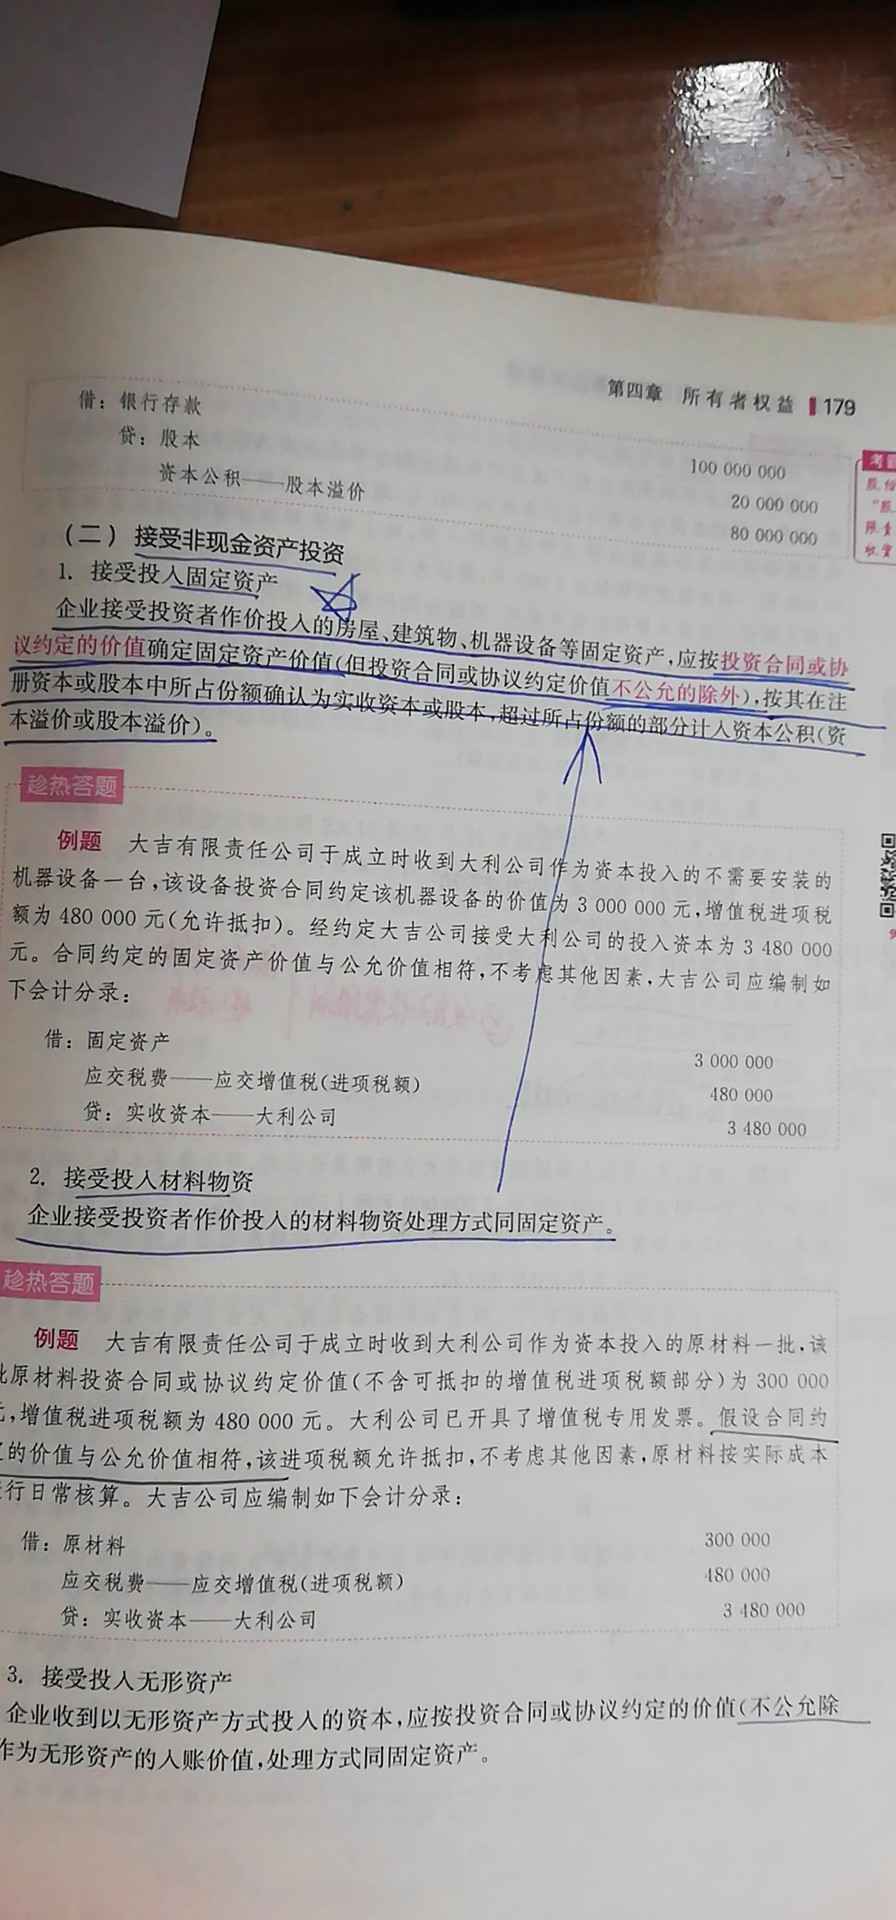 第四章 所有者权益 179
借：银行存款 100 000 000
贷：股本 20 000 000
资本公积——股本溢价 80 000 000
(二) 接受非现金资产投资
1. 接受投入固定资产
企业接受投资者作价投入的房屋、建筑物、机器设备等固定资产，应按投资合同或协
议约定的价值确定固定资产价值(但投资合同或协议约定价值不公允的除外)，按其在注
册资本或股本中所占份额确认为实收资本或股本，超过所占份额的部分计入资本公积(资
本溢价或股本溢价)。
趁热答题
例题 大吉有限责任公司于成立时收到大利公司作为资本投入的不需要安装的
机器设备一台，该设备投资合同约定该机器设备的价值为 3 000 000 元，增值税进项税
额为 480 000 元(允许抵扣)。经约定大吉公司接受大利公司的投入资本为 3 480 000
元。合同约定的固定资产价值与公允价值相符，不考虑其他因素，大吉公司应编制如
下会计分录：
借：固定资产 3 000 000
应交税费——应交增值税(进项税额) 480 000
贷：实收资本——大利公司 3 480 000
2. 接受投入材料物资
企业接受投资者作价投入的材料物资处理方式同固定资产。
趁热答题
例题 大吉有限责任公司于成立时收到大利公司作为资本投入的原材料一批，该
批原材料投资合同或协议约定价值(不含可抵扣的增值税进项税额部分)为 300 000
元，增值税进项税额为 480 000 元。大利公司已开具了增值税专用发票。假设合同约
定的价值与公允价值相符，该进项税额允许抵扣，不考虑其他因素，原材料按实际成本
进行日常核算。大吉公司应编制如下会计分录：
借：原材料 300 000
应交税费——应交增值税(进项税额) 480 000
贷：实收资本——大利公司 3 480 000
3. 接受投入无形资产
企业收到以无形资产方式投入的资本，应按投资合同或协议约定的价值(不公允除
作为无形资产的入账价值，处理方式同固定资产。